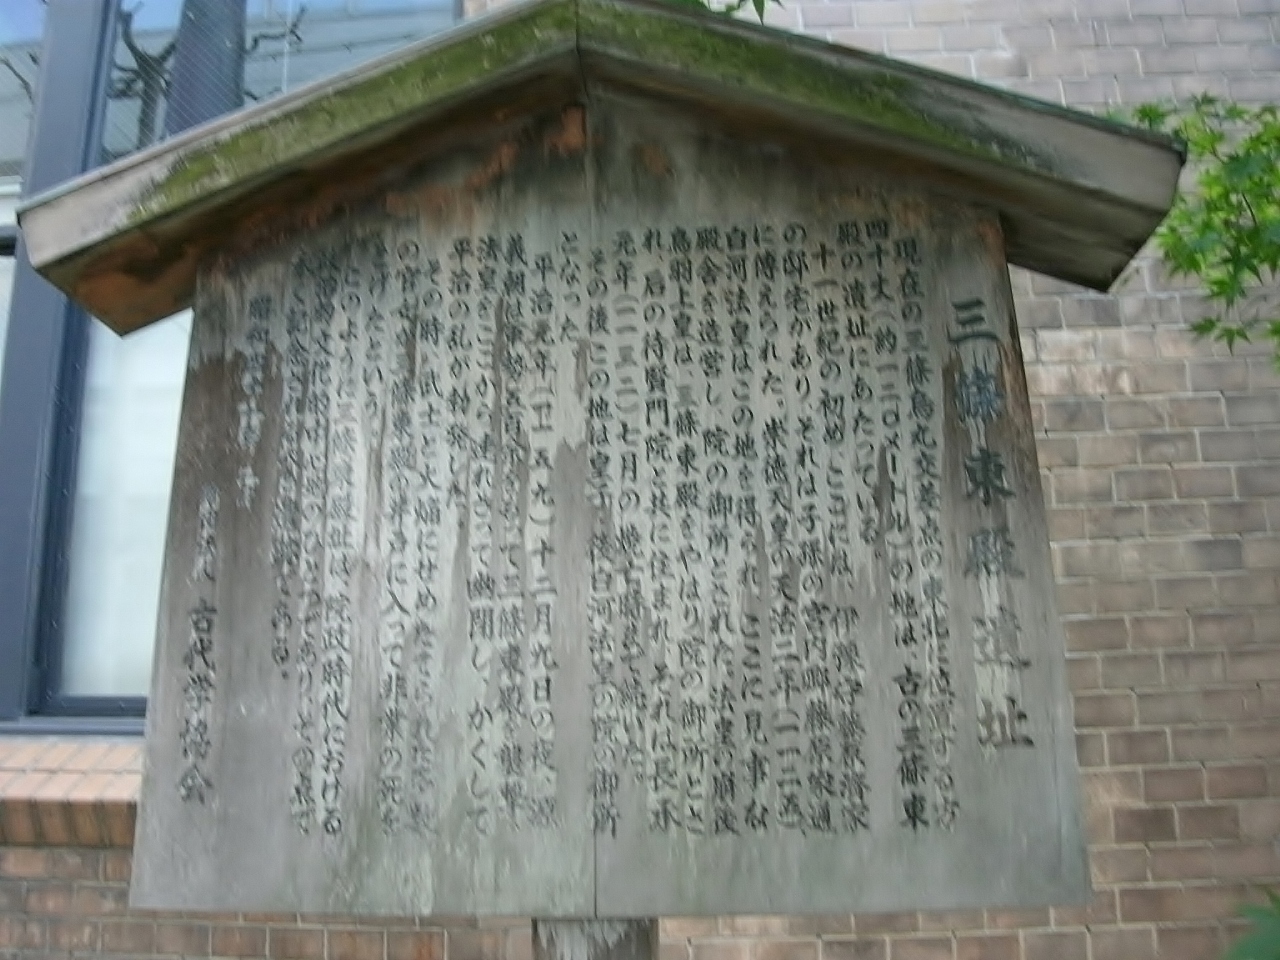 三條東殿遺址
現在の三條烏丸交差点の東北に位置する方
四十丈(約一二〇メートル)の地は、古の三條東
殿の遺址にあたっている。
十一世紀の初め、ここには、伊豫守藤原済家
の邸宅があり、それは子孫の宮内卿藤原家通
に傳えられた。崇徳天皇の天治二年(一一二五)、
白河法皇はこの地を得られ、ここに見事な
殿舎を造営し、院の御所とされた。法皇の崩後
鳥羽上皇は、三條東殿をやはり院の御所とさ
れ、后の待賢門院と共に住まれ、それは長承
元年(一一三二)七月の焼亡時まで続いた。
その後この地は皇子・後白河法皇の院の御所
となった。
平治元年(一一五九)十二月九日の夜、源
義朝は軍勢 をもって三條東殿を襲撃、
法皇をここから連れさって幽閉し、かくして
平治の乱が勃発した。
その時、武士と火焔に せめたてられた
の官女が三條東殿の井戸に入って非業の死を
たという。
このように三條東殿址は、院政時代における
のひとつであり、その点で
く記念さるべき である。
昭和四十 年
古代学協会